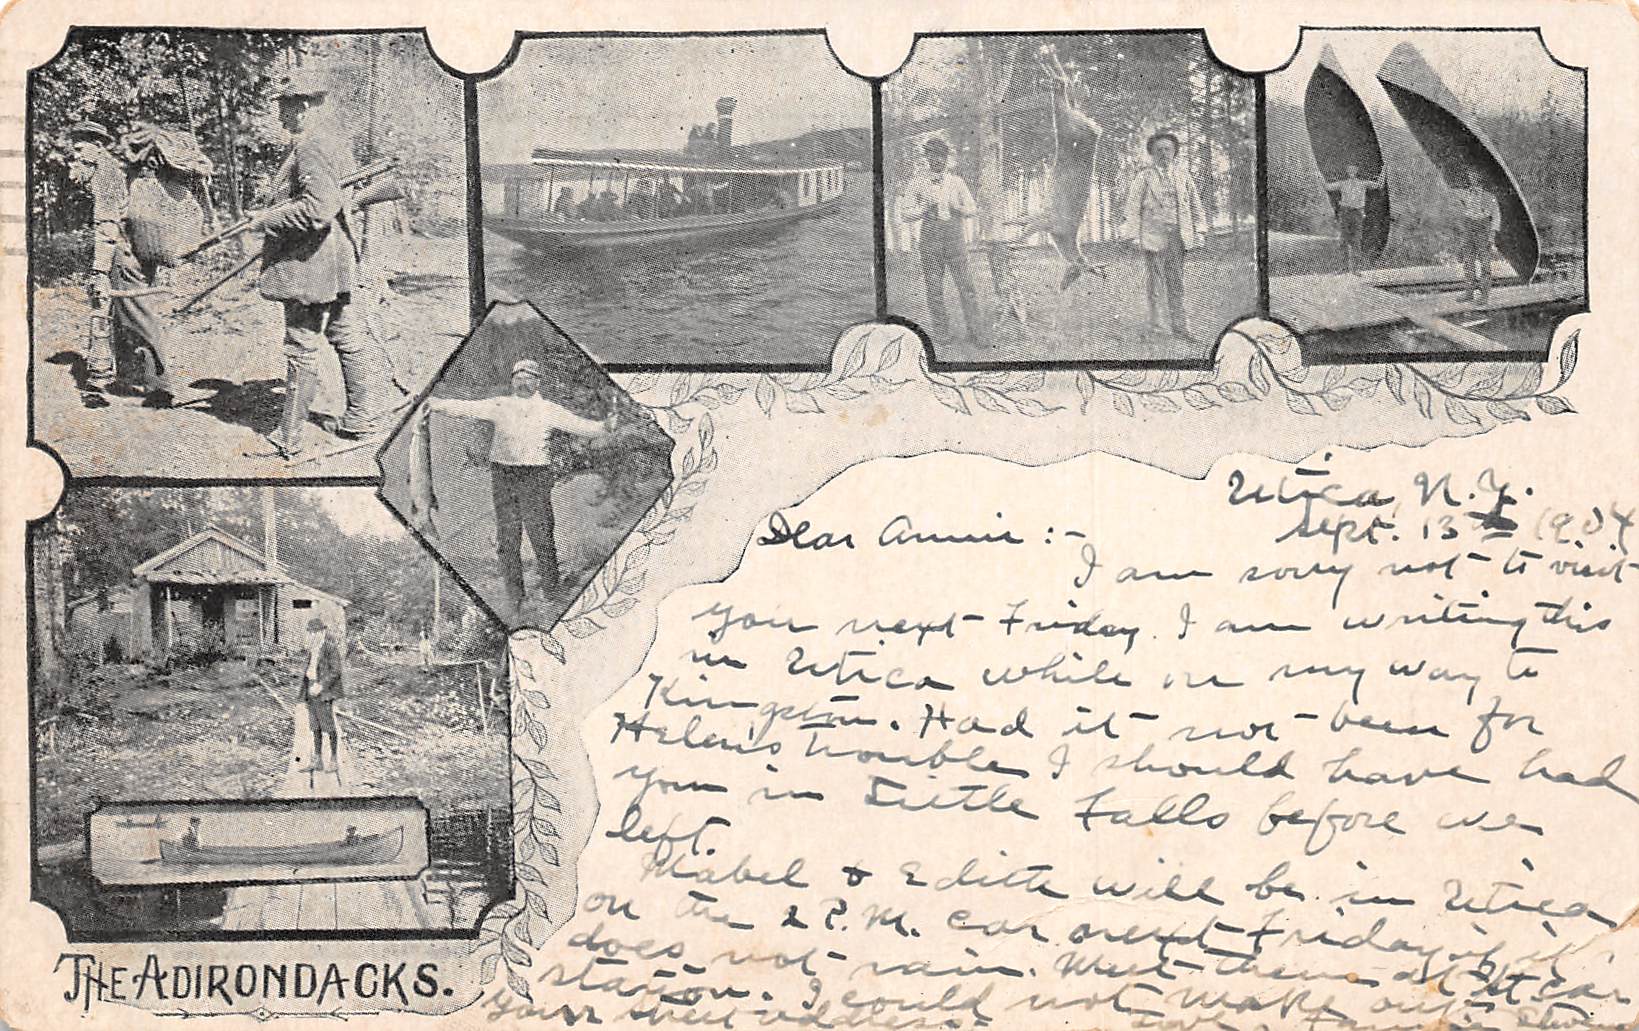 Utica, N.Y.
Sept. 13th 1904
Dear Annie :-
I am sorry not to visit
you next Friday. I am writing this
in Utica while on my way to
Kingston. Had it not been for
Helen's trouble I should have had
you in Little Falls before we
left.
Mabel & Edith will be in Utica
on the 2 P.M. car next Friday if it
does not rain. Meet them at St. car
station. I could not make out
your street address.
THE ADIRONDACKS.